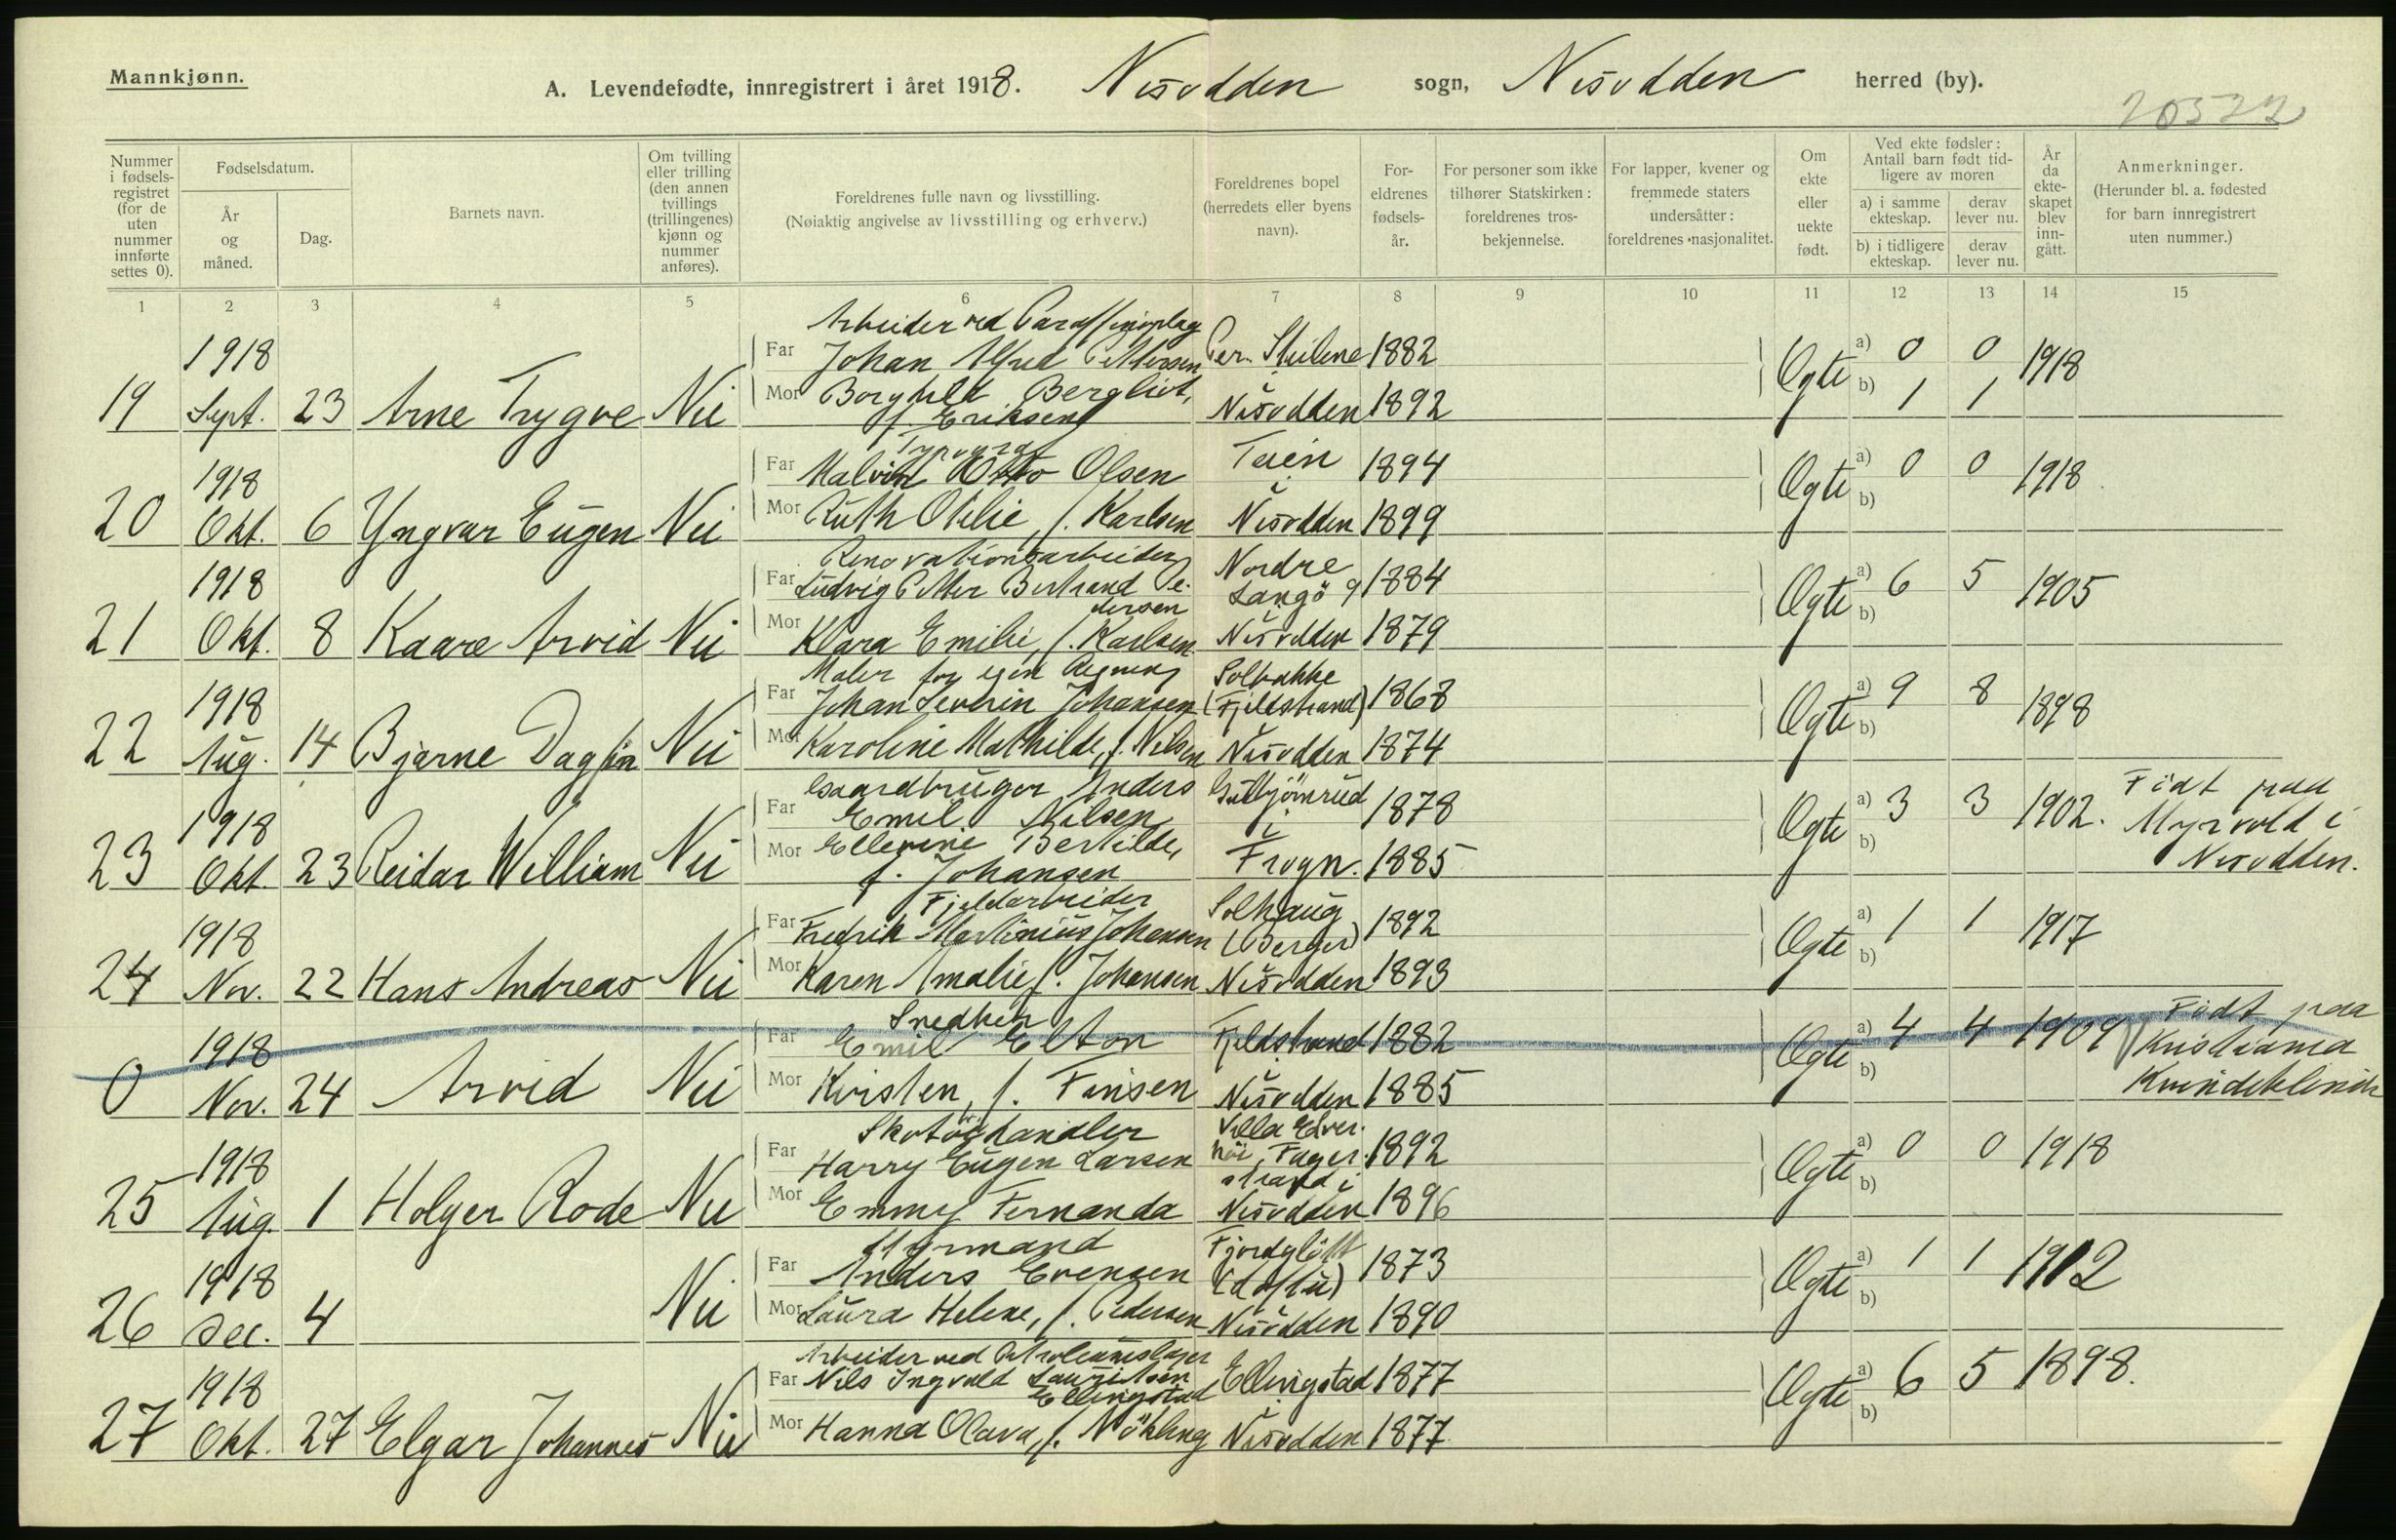 Mannkjønn.
A. Levendefødte, innregistrert i året 1918. Nesodden sogn, Nesodden herred (by).
20522
Nummer i fødselsregistret (for de uten nummer innførte settes 0).
Fødselsdatum.
År og måned.
Dag.
Barnets navn.
Om tvilling eller trilling (den annen tvillings (trillingenes) kjønn og nummer anføres).
Foreldrenes fulle navn og livsstilling.
(Nøiaktig angivelse av livsstilling og erhverv.)
Foreldrenes bopel (herredets eller byens navn).
Foreldrenes fødselsår.
For personer som ikke tilhører Statskirken: foreldrenes trosbekjennelse.
For lapper, kvener og fremmede staters undersåtter: foreldrenes nasjonalitet.
Om ekte eller uekte født.
Ved ekte fødsler: Antall barn født tidligere av moren
a) i samme ekteskap. derav lever nu.
b) i tidligere ekteskap. derav lever nu.
År da ekteskapet blev inngått.
Anmerkninger.
(Herunder bl. a. fødested for barn innregistrert uten nummer.)
1 2 3 4 5 6 7 8 9 10 11 12 13 14 15
Arbeider ved Paraffinoplag
1918 Far Johan Alfred Pettersen Per. Steilene 1882 a) 0 0 1918
19 Sept. 23 Arne Trygve Nei Mor Borghild Bergliot, Nesodden 1892 Egte b) 1 1
f. Eriksen
Typograf
1918 Far Malvin Otto Olsen Teien 1894 a) 0 0 1918
20 Okt. 6 Yngvar Eugen Nei Mor Ruth Otilie, f. Karlsen Nesodden 1899 Egte b)
Renovationsarbeider Nordre
1918 Far Ludvig Petter Bertrand Pe- Langö 9 1884 a) 6 5 1905
dersen
21 Okt. 8 Kaare Arvid Nei Mor Klara Emilie, f. Karlsen Nesodden 1879 Egte b)
Maler for egen Regning Solbakke
1918 Far Johan Severin Johansen (Fjeldstrand) 1868 a) 9 8 1898
22 Aug. 14 Bjarne Dagfin Nei Mor Karoline Mathilde, f. Nilsen Nesodden 1874 Egte b)
Gaardbruger Anders
1918 Far Emil Nilsen i 1878 a) 3 3 1902. Födt paa
23 Okt. 23 Reidar William Nei Mor Ellevine Bertilde, Frogn. 1885 Egte b) Myrvold i
f. Johansen Nesodden.
Fjeldarbeider Solhaug
1918 Far Fredrik Martinius Johansen (Berger) 1892 a) 1 1 1917
24 Nov. 22 Hans Andreas Nei Mor Karen Amalie f. Johansen Nesodden 1893 Egte b)
Snedker
1918 Far Emil Elton Fjeldstrand 1882 a) 4 4 1909 Födt paa
0 Nov. 24 Arvid Nei Mor Kirsten, f. Finsen Nesodden 1885 Egte b) Kristiania
Kvindeklinik
Skotöihandler Villa Elver-
1918 Far Harry Eugen Larsen höi, Fager- 1892 a) 0 0 1918
strand i
25 Aug. 1 Holger Rode Nei Mor Emmy Fernanda Nesodden 1896 Egte b)
Styrmand Fjordglött
1918 Far Anders Evensen 1873 a) 1 1 1912
26 Dec. 4 Nei Mor Laura Helene, f. Pedersen Nesodden 1890 Egte b)
Arbeider ved Petroleumslager
1918 Far Nils Ingvald Lauritsen Ellingstad 1877 a) 6 5 1898.
Ellingstad
27 Okt. 27 Elgar Johannes Nei Mor Hanna Olava, f. Nökling Nesodden 1877 Egte b)